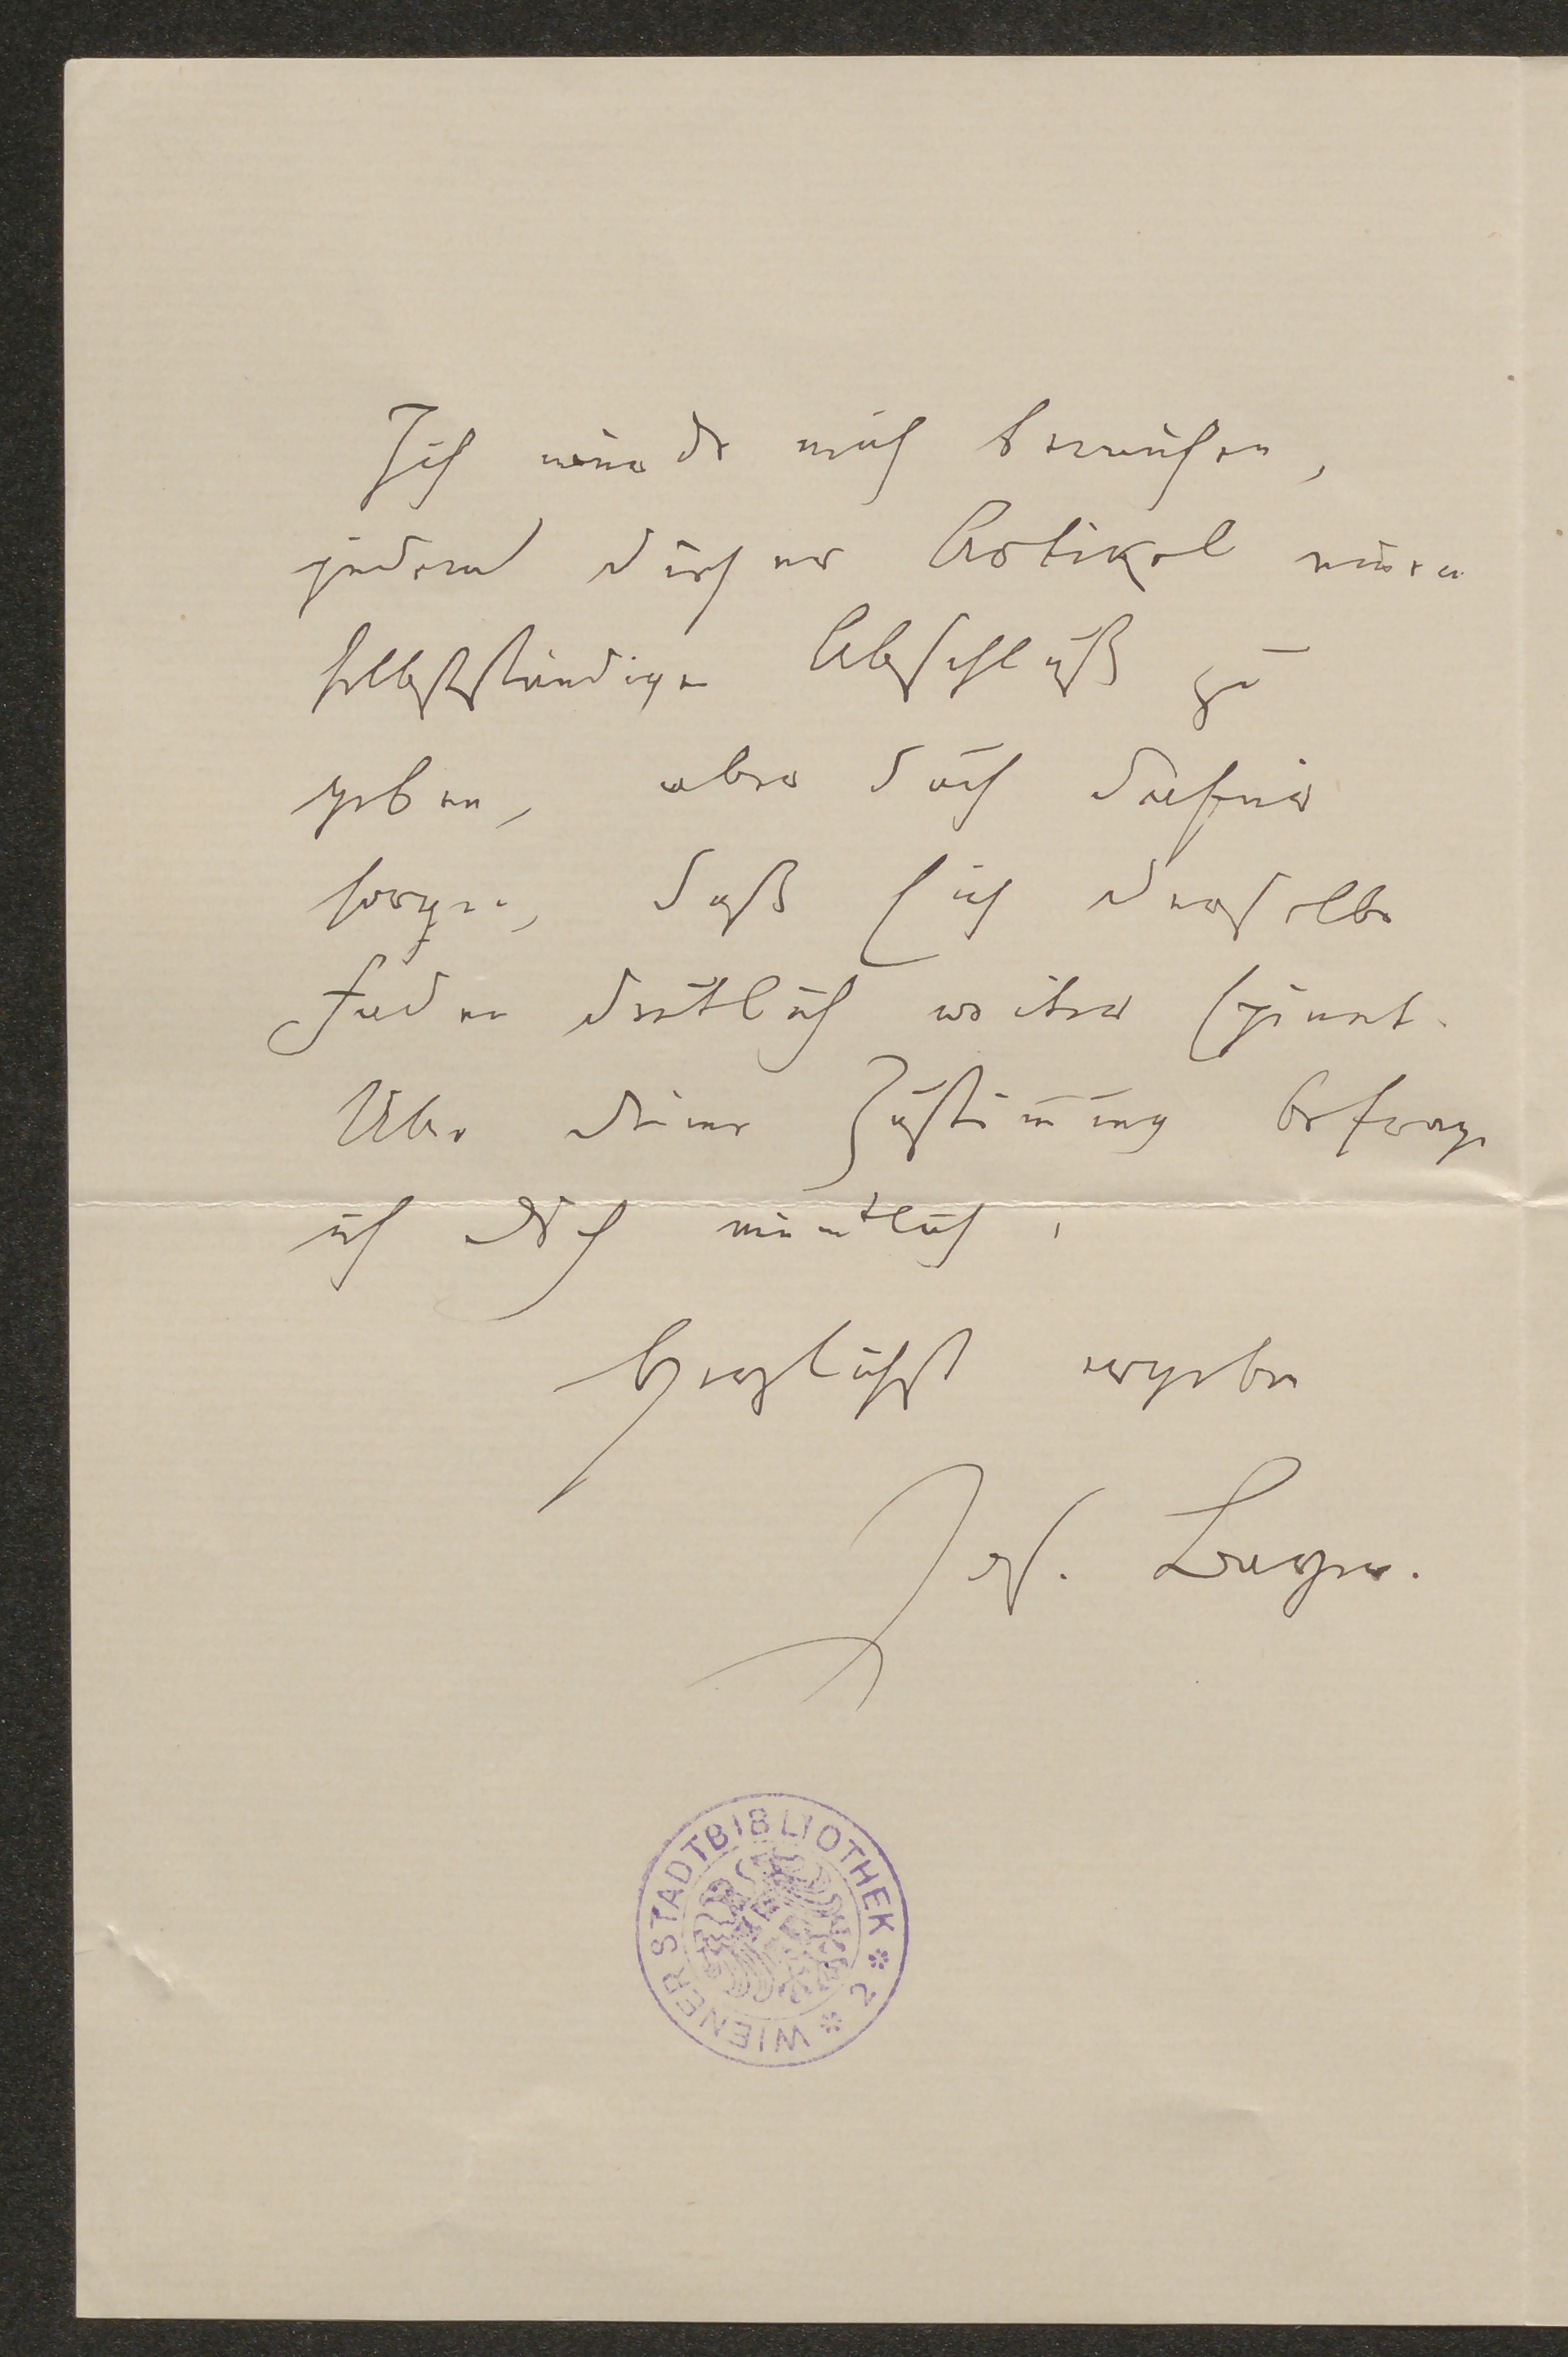 Ich würde mich bemühen,
jedem dieser Artikel einen
selbstständigen Abschluß zu
geben, aber doch dafür
sorgen, daß sich derselbe
Faden deutlich weiter spinnt.
Über deine Zustimmung befrage
ich dich mündlich.
Herzlichst ergeben
Jos. Bayer.
WIENER STADTBIBLIOTHEK * 2 *